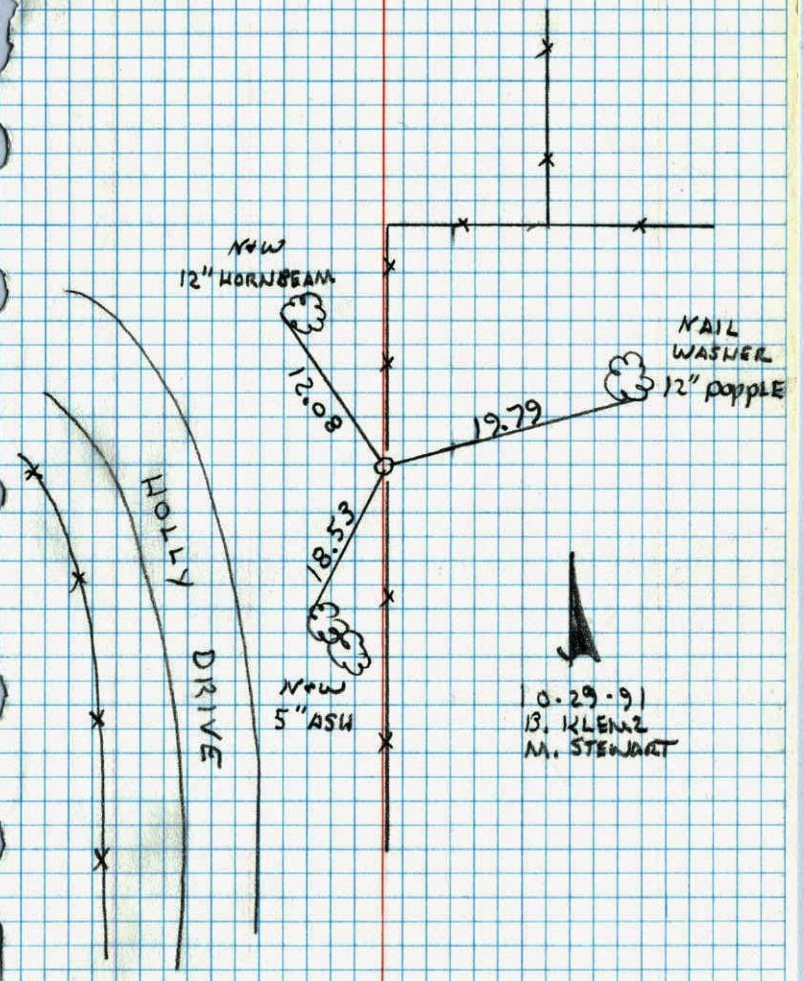 N+W
12" HORNBEAM
NAIL
WASHER
12" POPPLE
12.08
19.79
18.53
HOLLY
DRIVE
N+W
5" ASH
10.29.91
B. KLENZ
M. STEWART